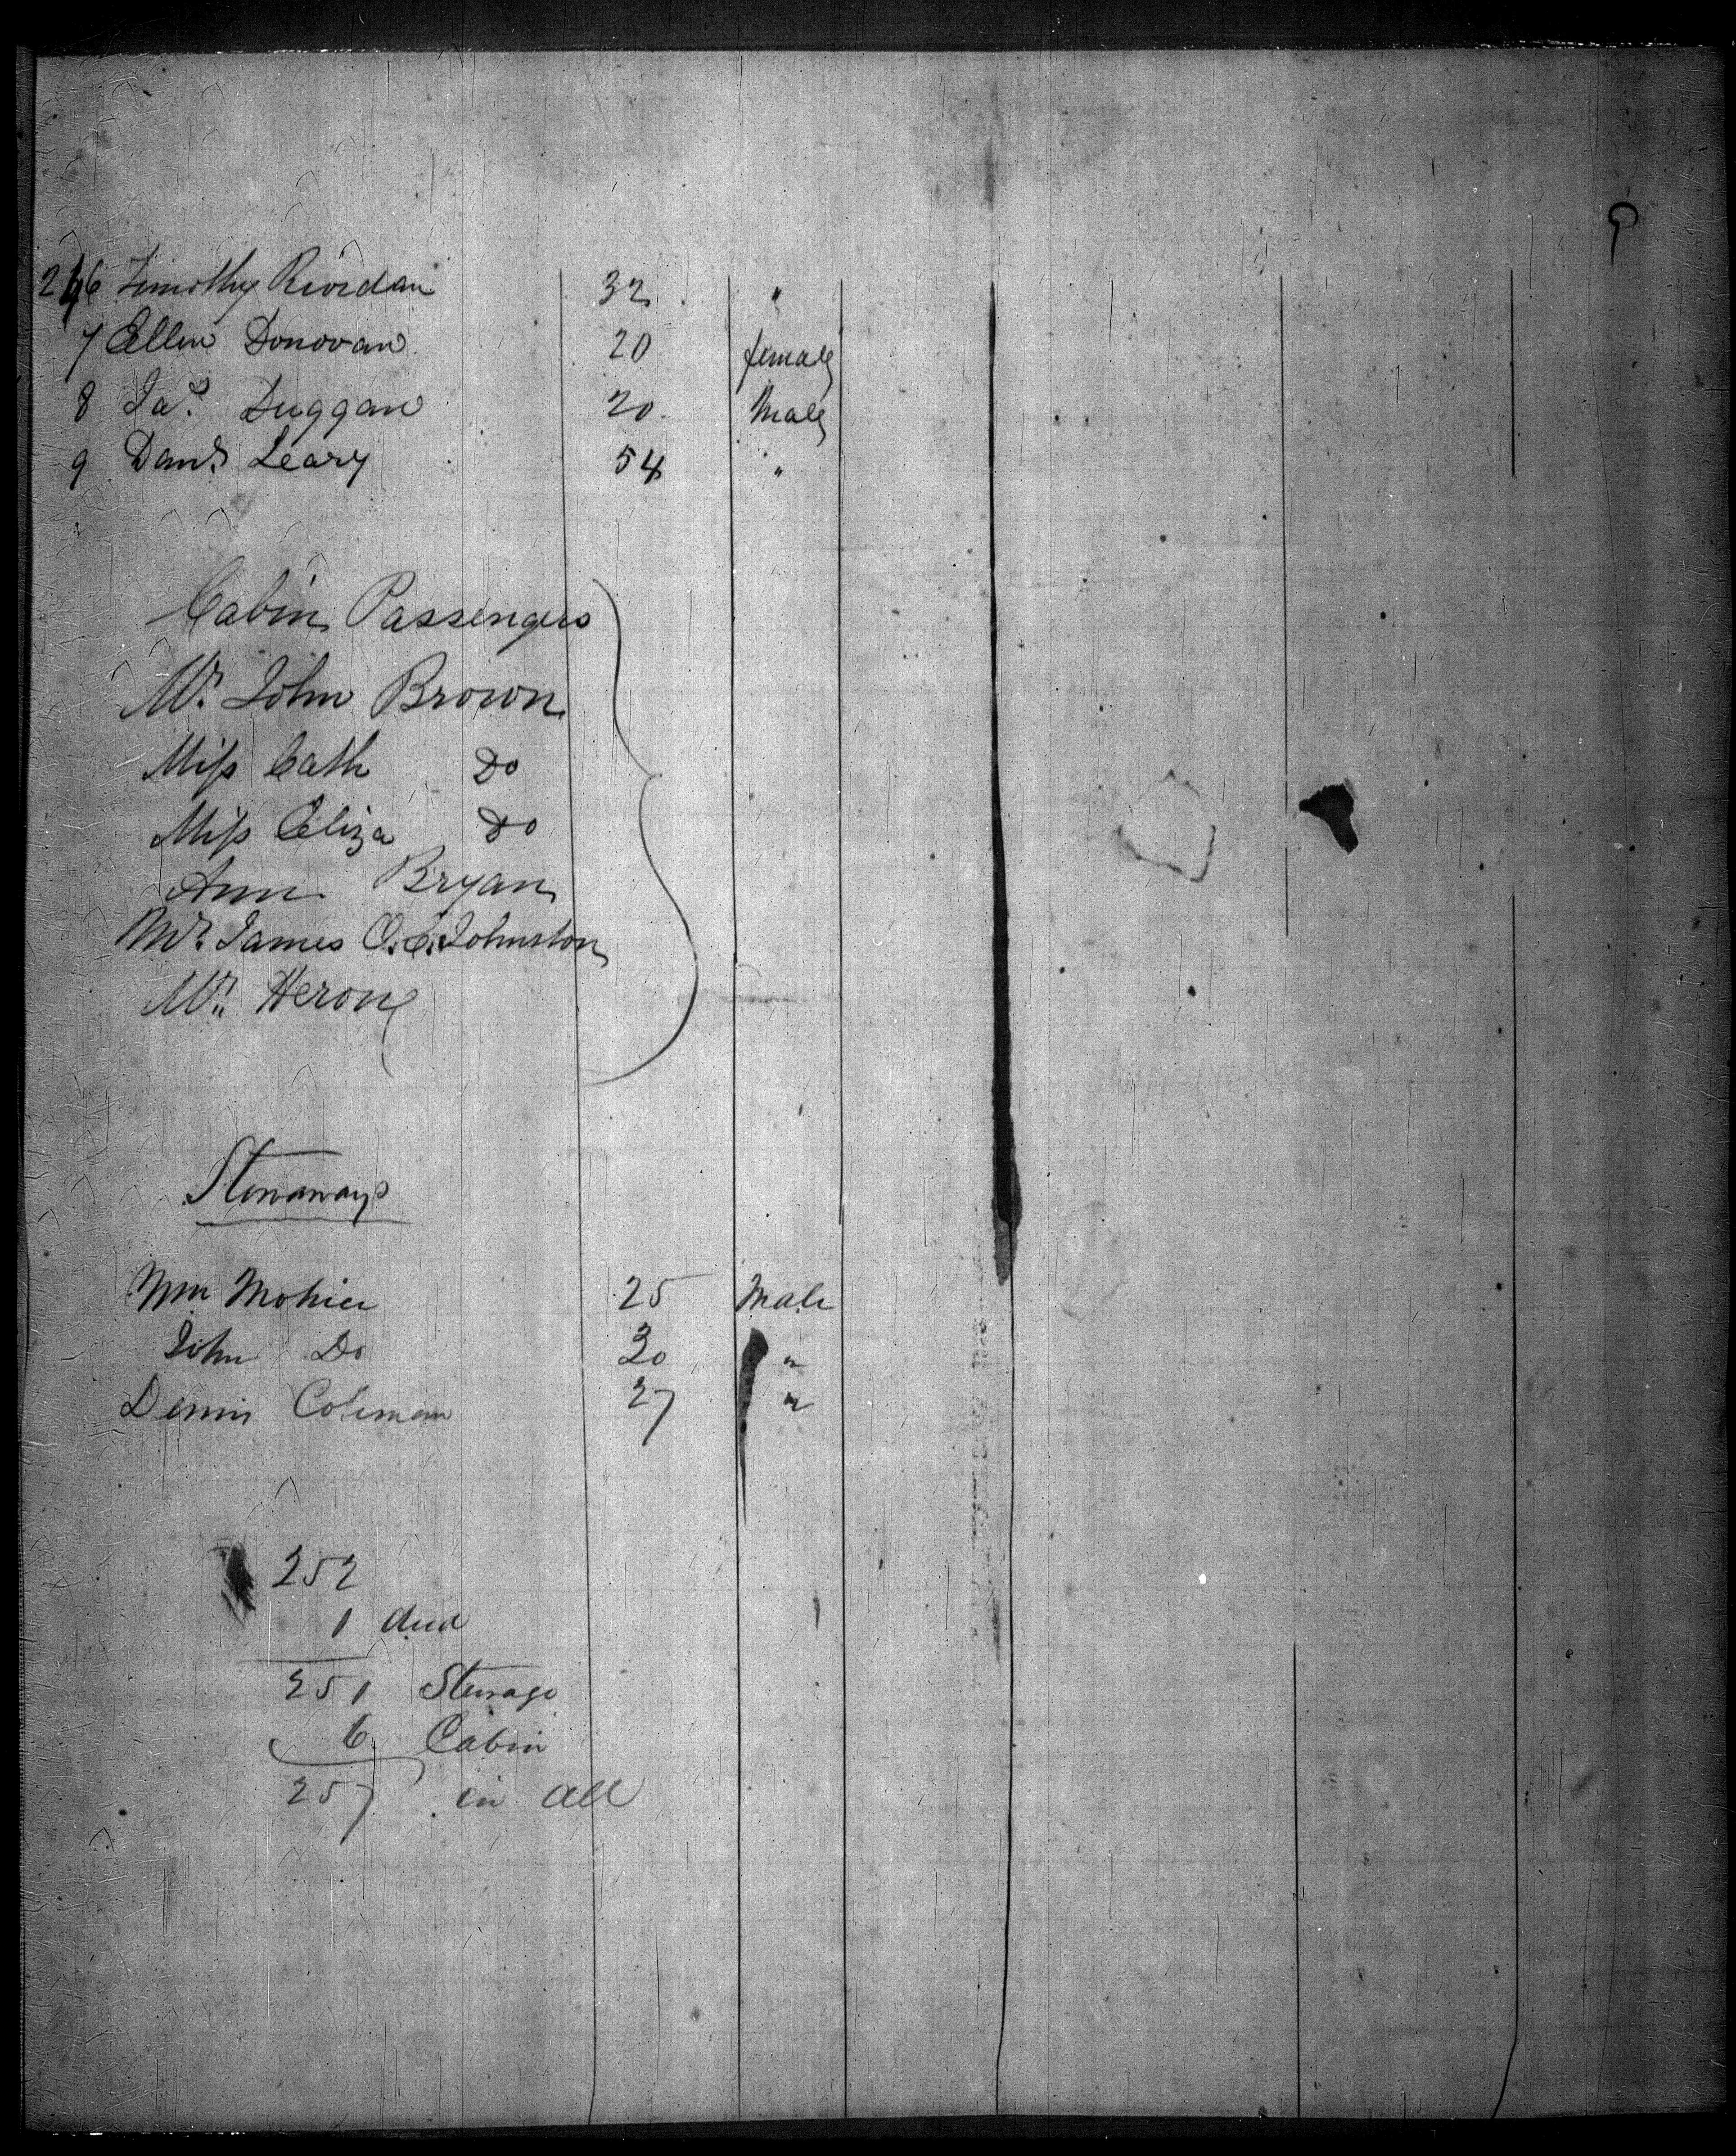 246 Timothy Riordan 32 "
7 Ellen Donovan 20 female
8 Jas. Duggan 20 Male
9 Danl. Leary 54 "
Cabin Passengers
Mr. John Brown
Miss Cath Do
Miss Eliza Do
Ann Bryan
Mr. James O.C. Johnston
Mr. Heron
Stowaways
Wm 25 Male
John Do 30 "
Dennis Coleman 27 "
252
1 died
251 Steerage
6 Cabin
257 in all